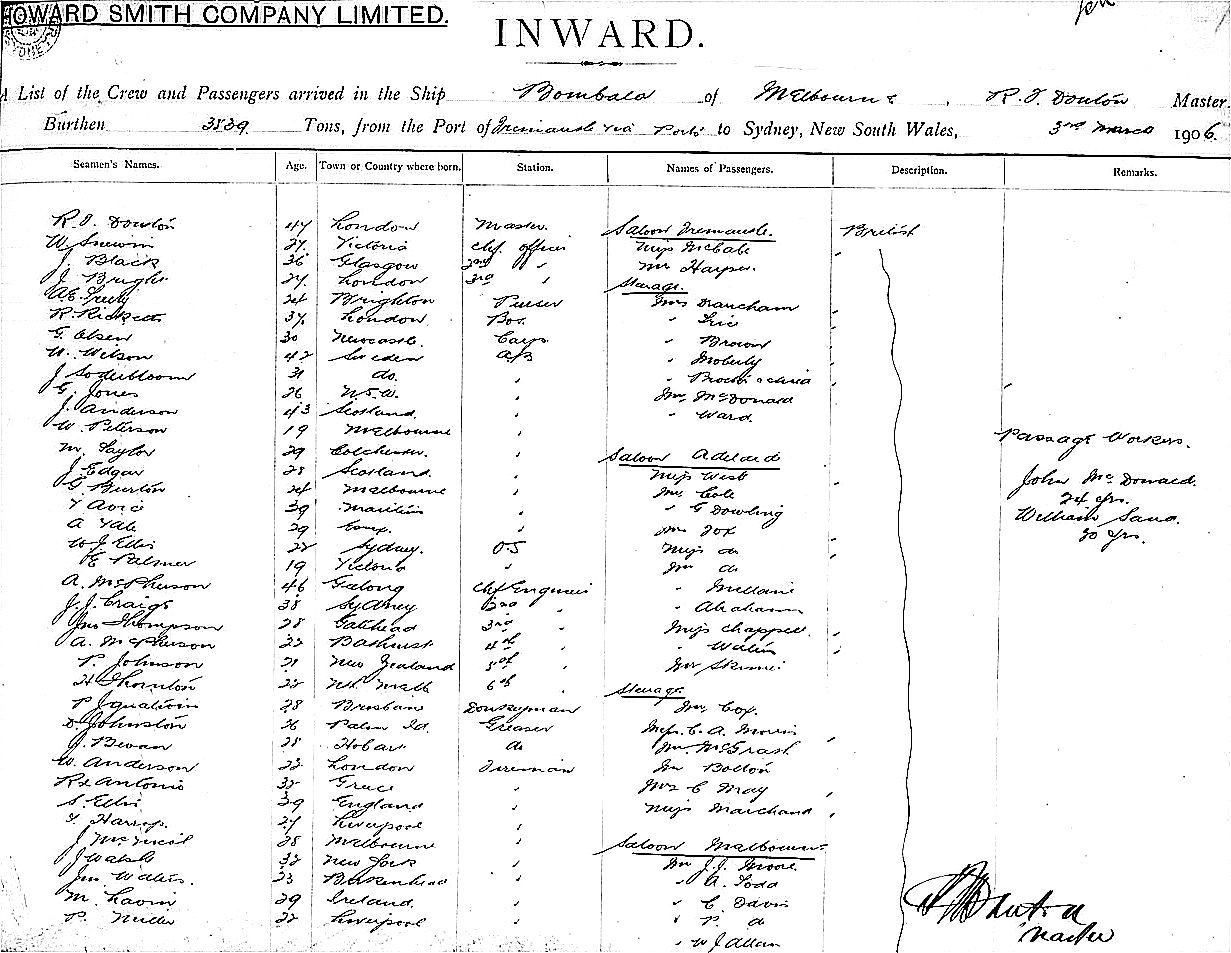 HOWARD SMITH COMPANY LIMITED.
INWARD.
A List of the Crew and Passengers arrived in the Ship Bombala of Melbourne, R. I. Douton Master
Burthen 3539 Tons, from the Port of Fremantle via Ports to Sydney, New South Wales, 3rd March 1906.
Seamen's Names. Age. Town or Country where born. Station. Names of Passengers. Description. Remarks.
R. I. Douton 47 London Master. Saloon Fremantle. British
W. 27. Victoria Chf. officer Miss McCabe
J. Black 36 Glasgow 2nd " Mr Harper.
J. Bright 27 London 3rd " Steerage.
24 Brighton Purser Mrs
R. Ricketts 37 London Bos. "
G. Olsen 30 Newcastle. Carp. " Brown
W. Wilson 42 Sweden AB " Moberly
J. Soderbloom 31 do. " "
G. Jones 26 N.S.W. " Mr. McDonald
J. Anderson 43 Scotland. " " Ward.
W. Peterson 19 Melbourne " Passage Workers.
M. Taylor 29 Colchester. " Saloon Adelaide
J. Edgar 28 Scotland. " Miss West John McDonald.
G. Burton 24 Melbourne " Mr. Cole 24 yrs.
39 Mauritius " " G Dowling William
A 29 " Mr Fox 30 yrs.
W. J. Ellis 22 Sydney. O.S Miss do
E Palmer 19 Victoria " Mr do
A. McPherson 46 Geelong Chf Engineer "
J. J. Craigs 38 Sydney 2nd " " Abrahams
Jno Thompson 28 Gateshead 3rd " Miss Chappel.
A. McPherson 22 Bathurst 4th " "
P. Johnson 21 New Zealand 5th " Mr
H Thornton 22 6th " Steerage
P 28 Brisbane Donkeyman Mr. Cox.
D Johnston 26 Palm Id. Greaser C. A. Morris
J. Bevan 28 Hobart do Mr. McGrath
W. Anderson 22 London Fireman Mr Bolton
Antonio 32 Greece " Mrs C May
S. Ellis 29 England " Miss Marchand
Harrop. 27 Liverpool "
J McNeil 28 Melbourne " Saloon Melbourne.
J Walsh 32 New York " Mr J. J. Moore.
Jno 23 Birkenhead " " A. Todd
M. Lavin 29 Ireland. " " C Davis
P. Miller 22 Liverpool " " P do
" W J Allan
Master